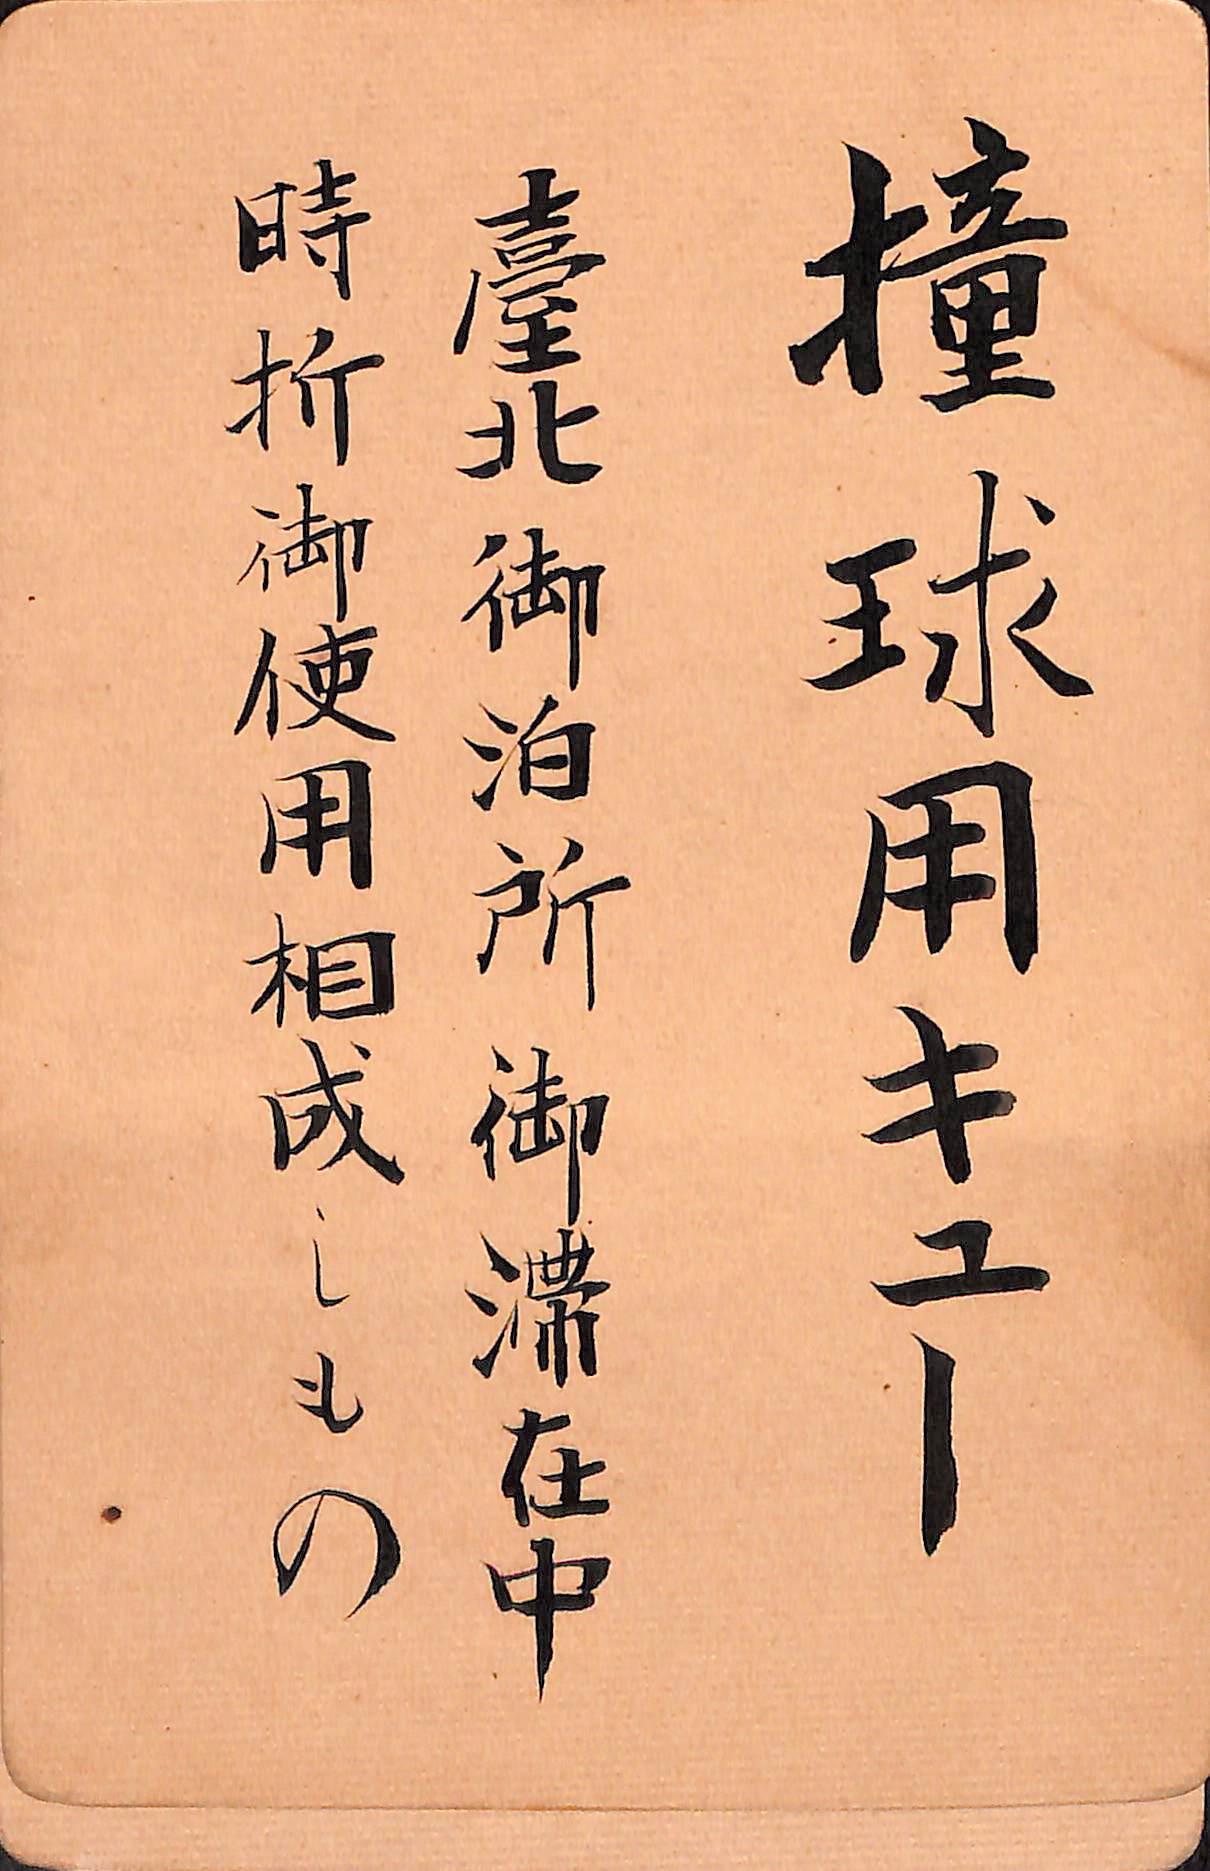 撞球用キュー
臺北御泊所御滯在中
時折御使用相成しもの